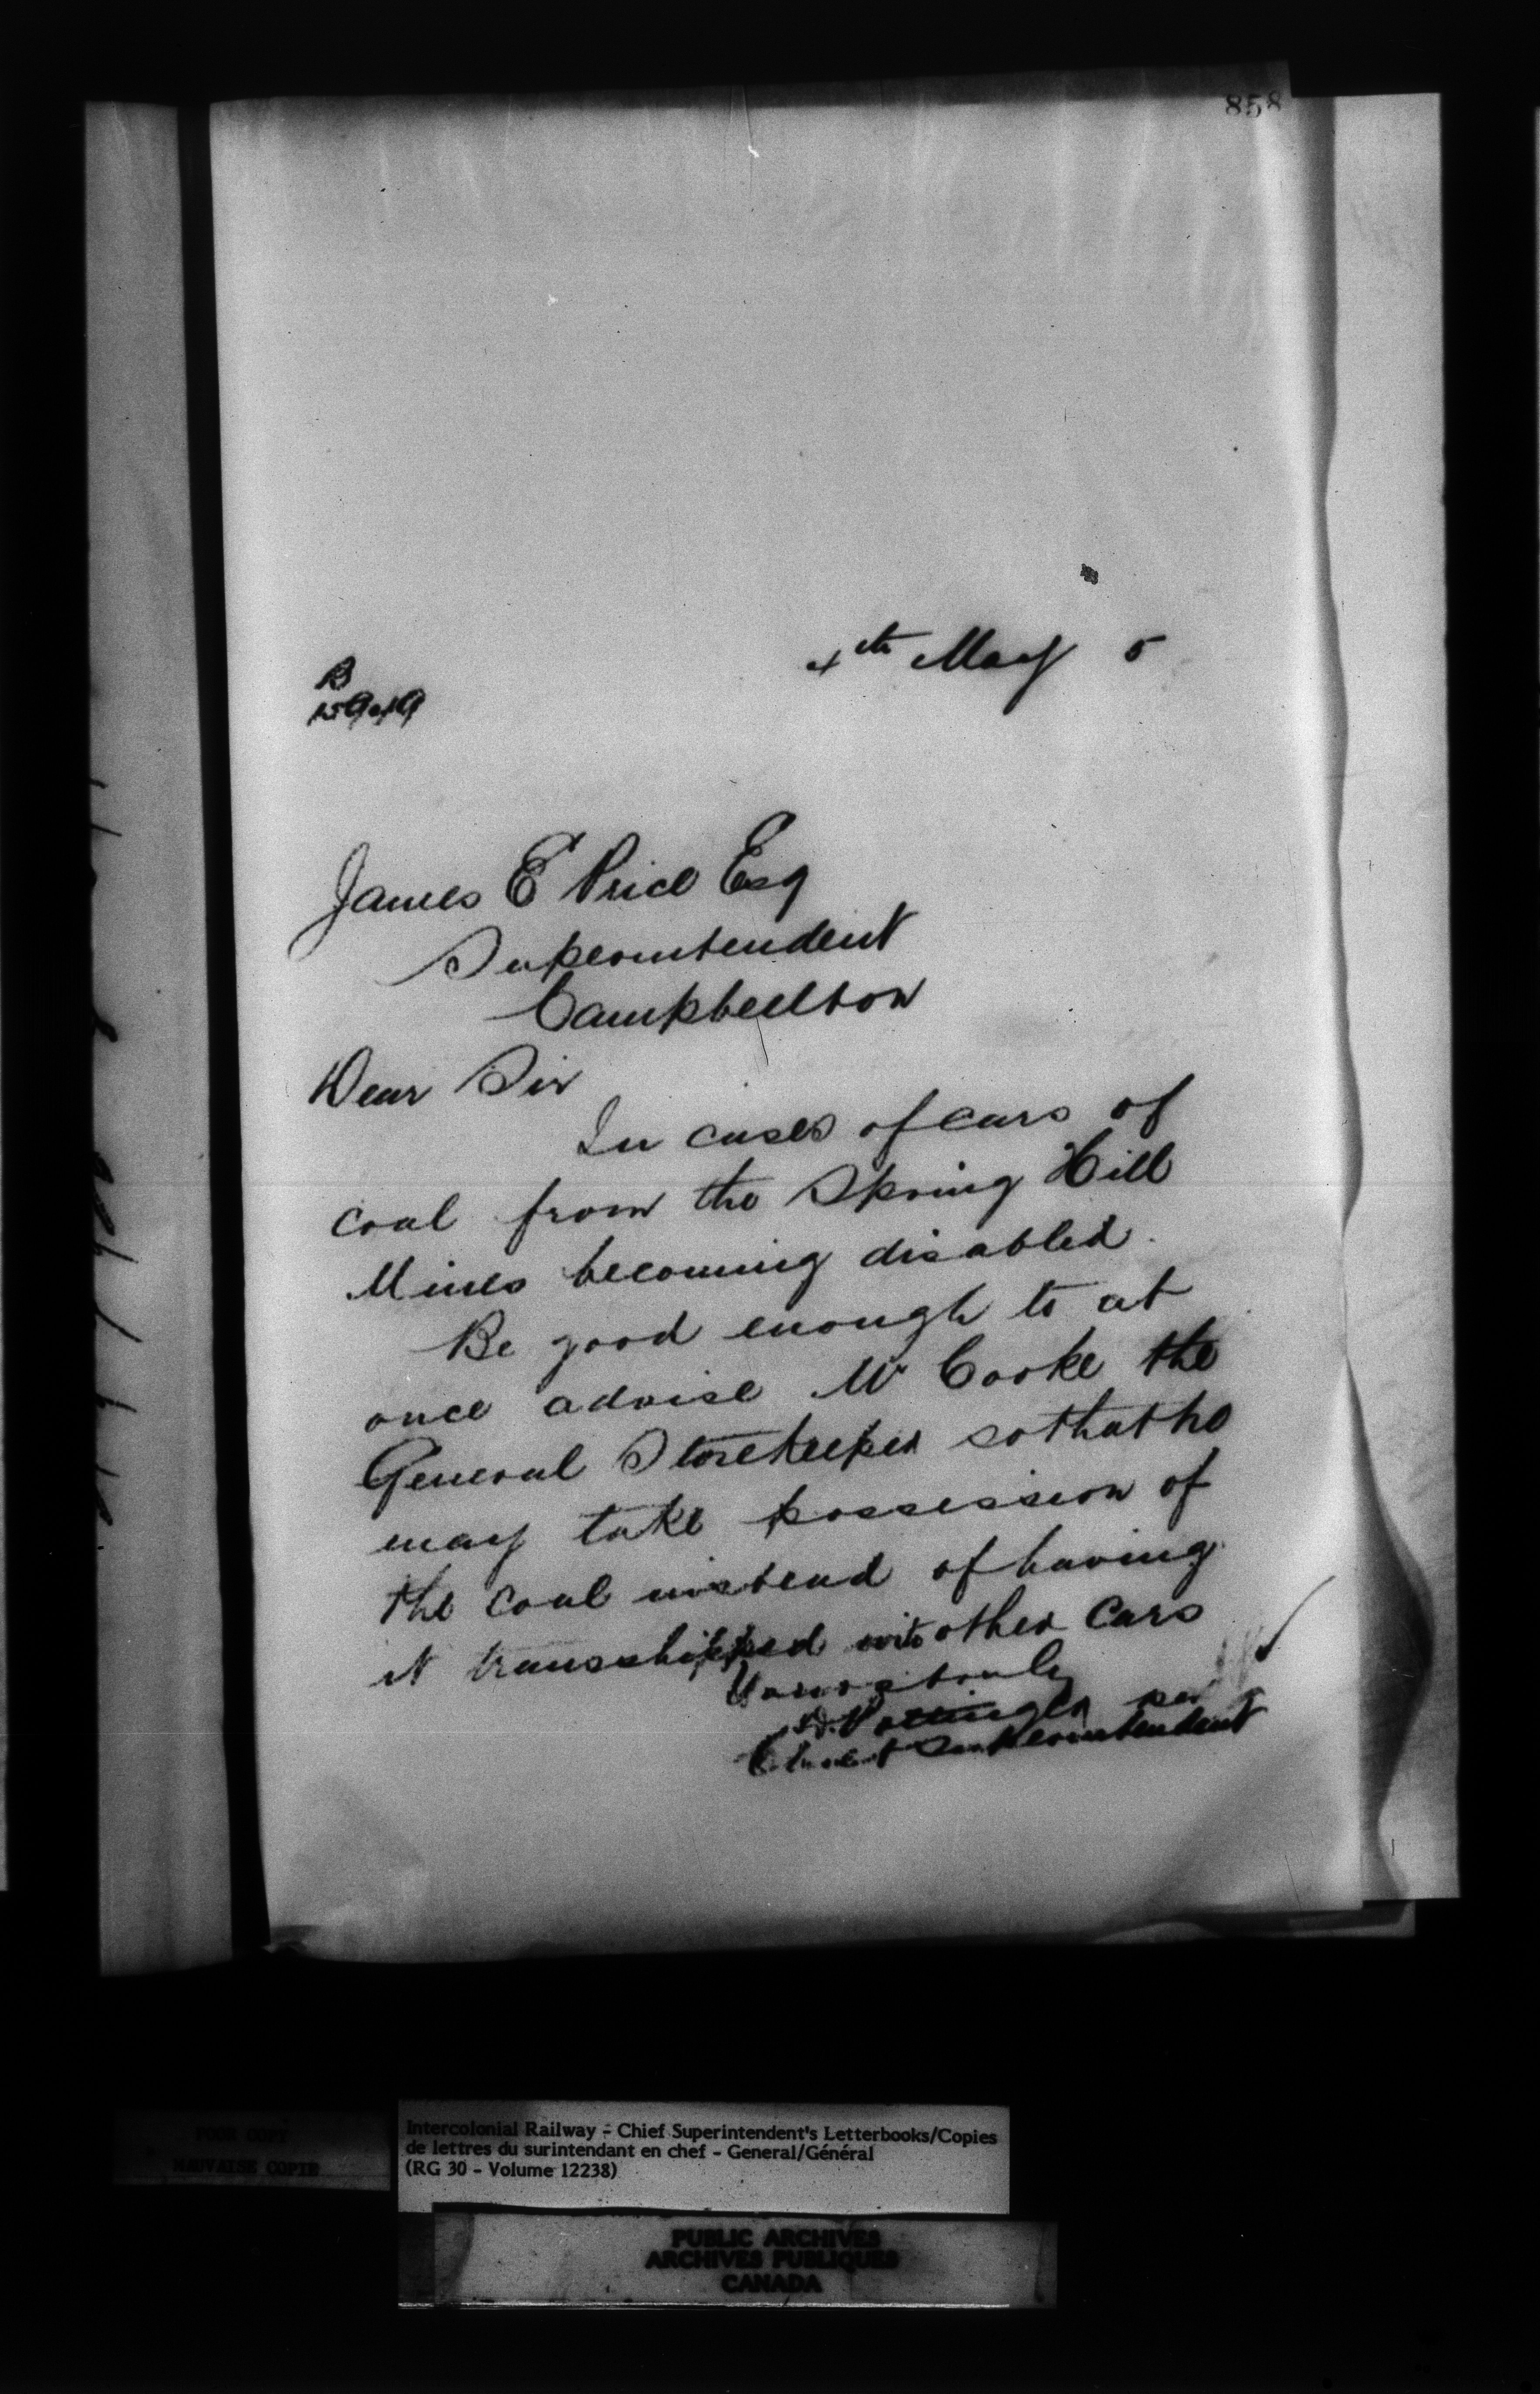 858
4th May 5
B
James E Price Esq
Superintendent
Campbellton
Dear Sir
In cases of cars of
coal from the Spring Hill
Mines becoming disabled.
Be good enough to at
once advise Mr Cooke the
General Storekeeper so that he
may take possession of
the coal instead of having
it transshipped into other cars
Yours truly
D. Pottinger per
Chief Superintendent
POOR COPY
MAUVAISE COPIE
Intercolonial Railway - Chief Superintendent's Letterbooks/Copies
de lettres du surintendant en chef - General/Général
(RG 30 - Volume 12238)
PUBLIC ARCHIVES
ARCHIVES PUBLIQUES
CANADA